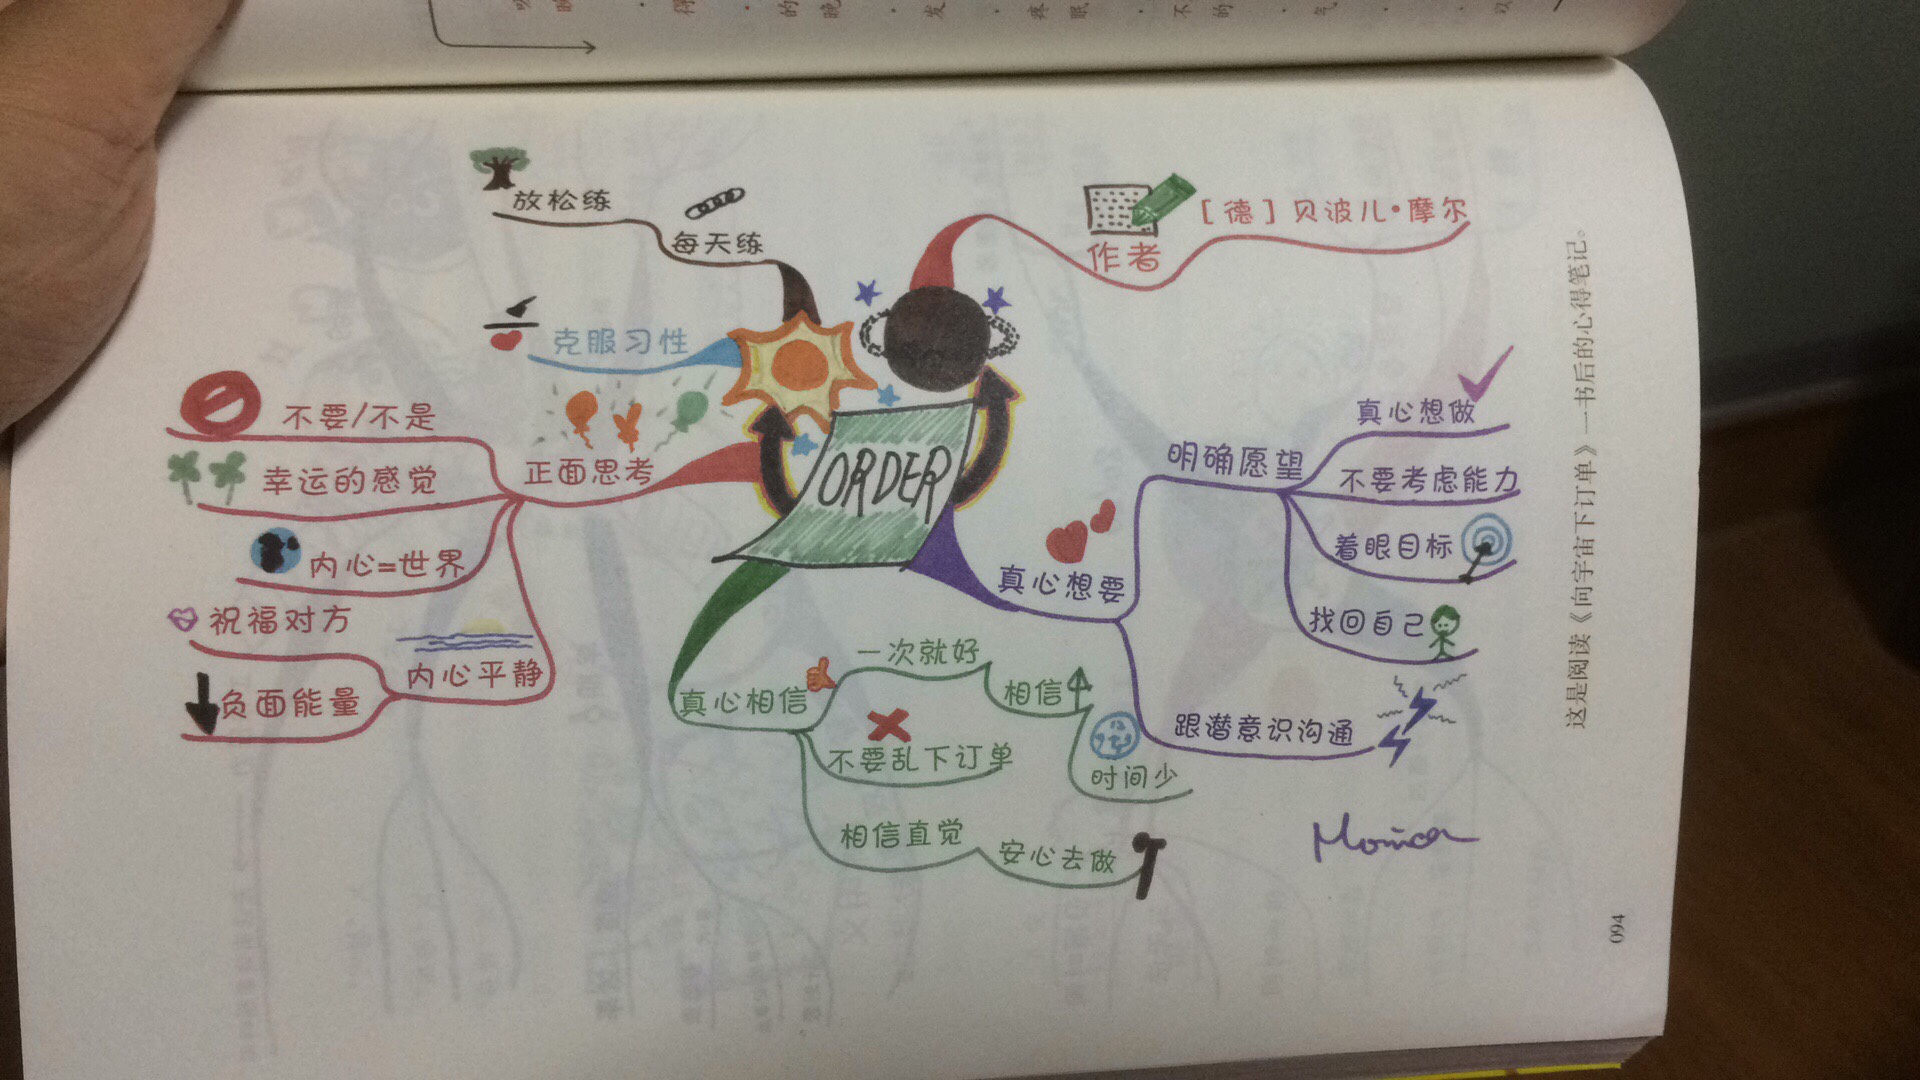 ORDER
作者
[德]贝波儿·摩尔
真心想要
明确愿望
真心想做
不要考虑能力
着眼目标
找回自己
跟潜意识沟通
真心相信
一次就好
相信
时间少
不要乱下订单
相信直觉
安心去做
正面思考
不要/不是
幸运的感觉
内心=世界
内心平静
祝福对方
负面能量
克服习性
每天练
放松练
Monica
这是阅读《向宇宙下订单》一书后的心得笔记。
094